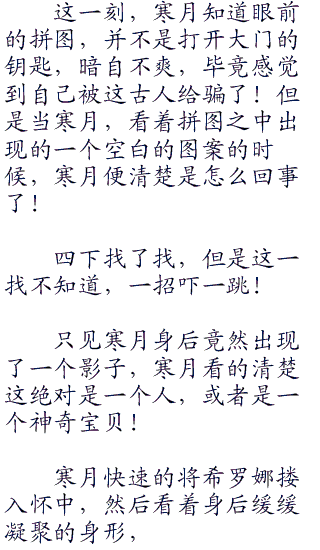 这一刻，寒月知道眼前
的拼图，并不是打开大门的
钥匙，暗自不爽，毕竟感觉
到自己被这古人给骗了！但
是当寒月，看着拼图之中出
现的一个空白的图案的时
候，寒月便清楚是怎么回事
了！
四下找了找，但是这一
找不知道，一招吓一跳！
只见寒月身后竟然出现
了一个影子，寒月看的清楚
这绝对是一个人，或者是一
个神奇宝贝！
寒月快速的将希罗娜搂
入怀中，然后看着身后缓缓
凝聚的身形，